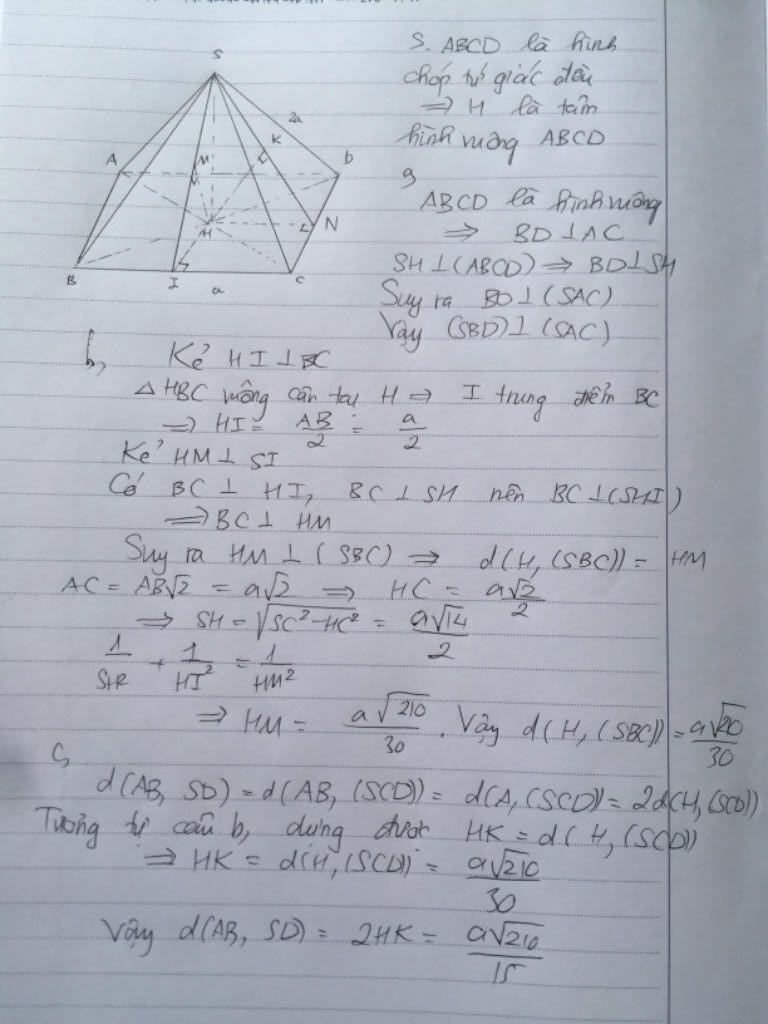 S. ABCD là hình
chóp tứ giác đều
⇒ H là tâm
hình vuông ABCD
S
2a
K
A
M
D
H
N
B
I
a
C
a,
ABCD là hình vuông
⇒ BD ⊥ AC
SH ⊥ (ABCD) ⇒ BD ⊥ SH
Suy ra BD ⊥ (SAC)
Vậy (SBD) ⊥ (SAC)
b, Kẻ HI ⊥ BC
△HBC vuông cân tại H ⇒ I trung điểm BC
⇒ HI = AB/2 = a/2
Kẻ HM ⊥ SI
Có BC ⊥ HI, BC ⊥ SH nên BC ⊥ (SHI)
⇒ BC ⊥ HM
Suy ra HM ⊥ (SBC) ⇒ d(H, (SBC)) = HM
AC = AB√2 = a√2 ⇒ HC = a√2/2
⇒ SH = √(SC² - HC²) = a√14/2
1/SH² + 1/HI² = 1/HM²
⇒ HM = a√210/30 . Vậy d(H, (SBC)) = a√210/30
c,
d(AB, SD) = d(AB, (SCD)) = d(A, (SCD)) = 2d(H, (SCD))
Tương tự câu b, dựng được HK = d(H, (SCD))
⇒ HK = d(H, (SCD)) = a√210/30
Vậy d(AB, SD) = 2HK = a√210/15